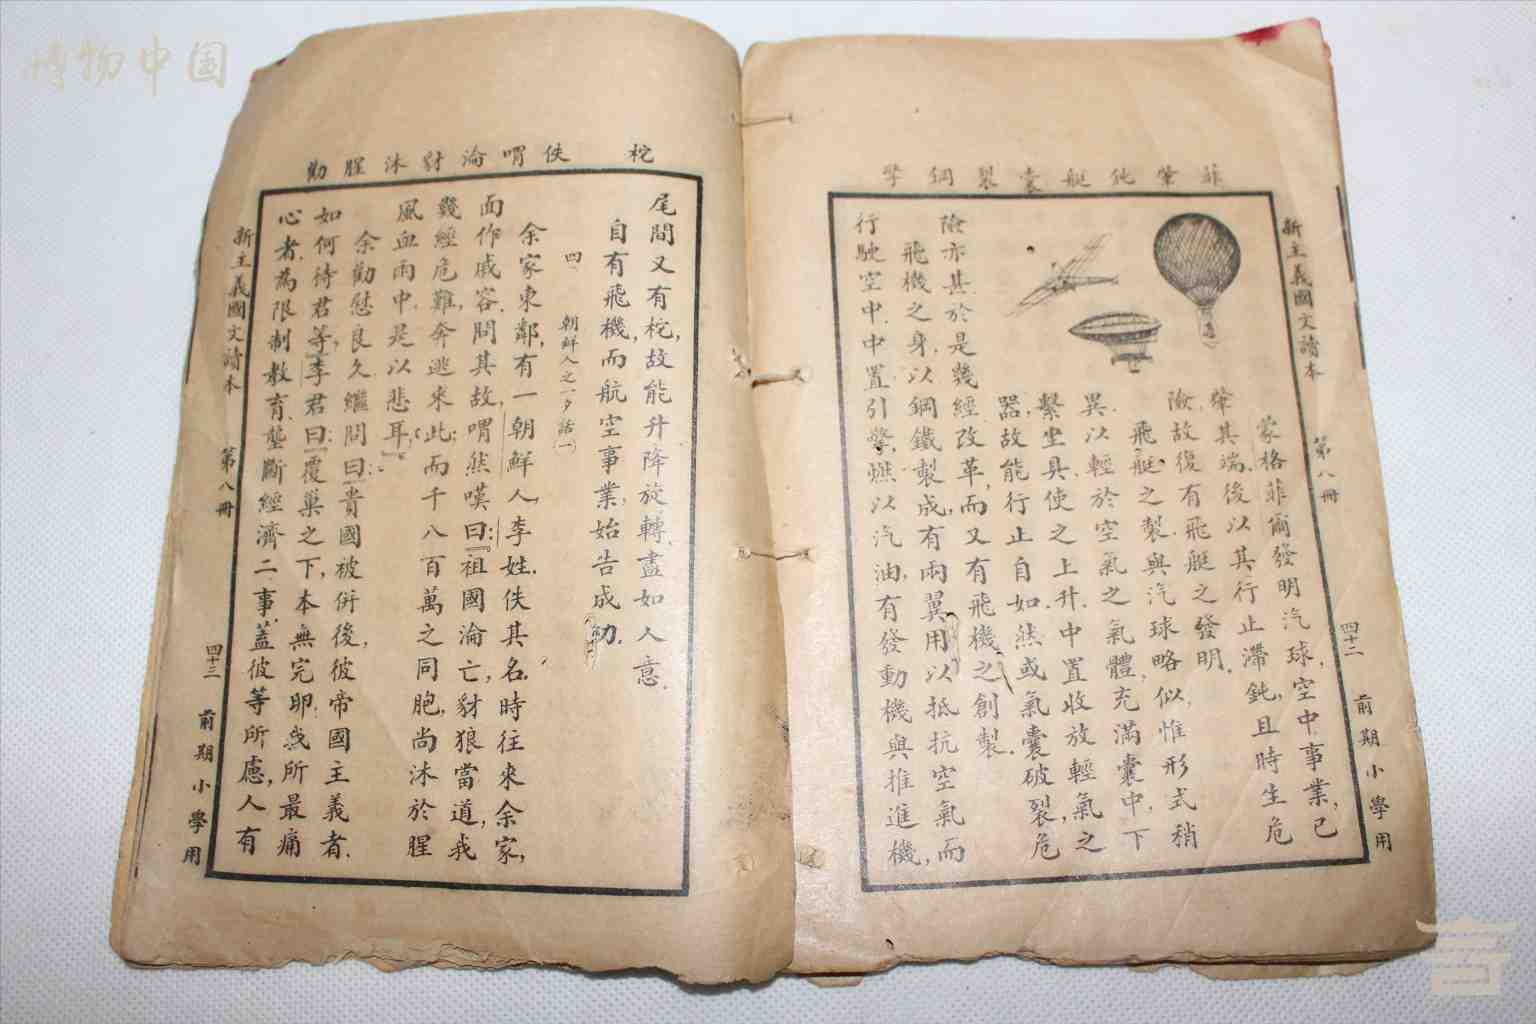 博物中国
菲 肇 鈍 艇 囊 裂 鋼 擎
新主義國文讀本 第八冊 四十二 前期小學用
蒙格菲爾發明汽球,空中事業,已
肇其端.後以其行止滯鈍,且時生危
險,故復有飛艇之發明.
飛艇之製,與汽球略似,惟形式稍
異.以輕於空氣之氣體,充滿囊中,下
繫坐具,使之上升.中置收放輕氣之
器,故能行止自如.然或氣囊破裂,危
險亦甚,於是幾經改革,而又有飛機之創製.
飛機之身,以鋼鐵製成,有兩翼,用以抵抗空氣而
行駛空中.中置引擎,燃以汽油,有發動機與推進機,
柁 佚 喟 淪 豺 沐 腥 勸
尾間又有柁,故能升降旋轉,盡如人意.
自有飛機,而航空事業,始告成功.
四、朝鮮人之一夕話(一)
余家東鄰,有一朝鮮人,李姓,佚其名.時往來余家,
面作戚容.問其故,喟然嘆曰:『祖國淪亡,豺狼當道,我
幾經危難,奔逃來此;而千八百萬之同胞,尚沐於腥
風血雨中.是以悲耳.』
余勸慰良久,繼問曰:『貴國被併後,彼帝國主義者,
如何待君等』李君曰:『覆巢之下,本無完卵.我所最痛
心者,為限制教育,壟斷經濟二事.蓋彼等所慮,人有
新主義國文讀本 第八冊 四十三 前期小學用